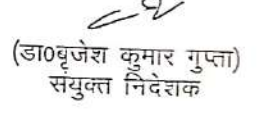 (डा0बृजेश कुमार गुप्ता)
संयुक्त निदेशक